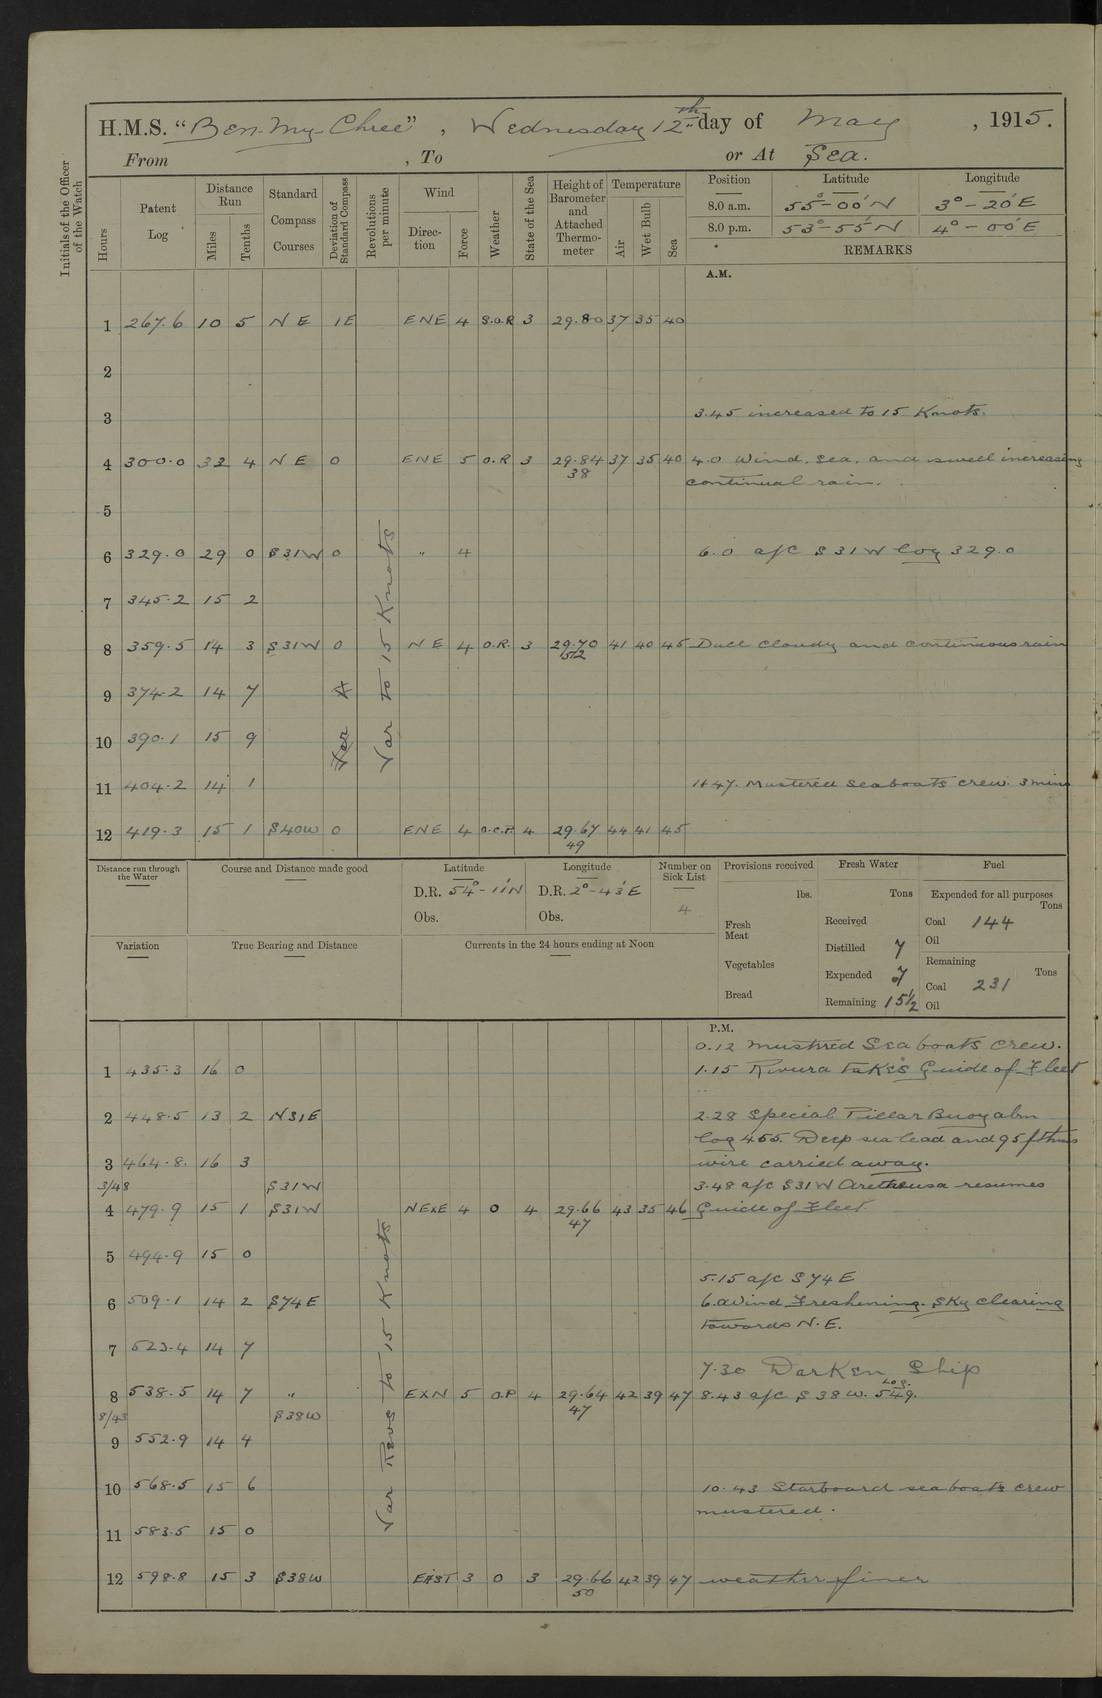 H.M.S. "Ben-my-Chree", Wednesday 12th day of May, 1915.
From , To or At Sea.
Initials of the Officer of the Watch
Hours
Patent Log
Distance Run
Miles
Tenths
Standard Compass Courses
Deviation of Standard Compass
Revolutions per minute
Wind
Direction
Force
Weather
State of the Sea
Height of Barometer and Attached Thermometer
Temperature
Air
Wet Bulb
Sea
Position Latitude Longitude
8.0 a.m. 55°-00'N 3°-20'E
8.0 p.m. 53°-55'N 4°-00'E
REMARKS
A.M.
1 267.6 10 5 NE 1E ENE 4 S.O.R 3 29.80 37 35 40
2
3 3.45 increased to 15 Knots.
4 300.0 32 4 NE 0 ENE 5 O.R 3 29.84 37 35 40 4.0 Wind, Sea, and swell increasing
38 continual rain.
5
6 329.0 29 0 S31W 0 " 4 6.0 a/c S 31 W log 329.0
7 345.2 15 2
8 359.5 14 3 S31W 0 NE 4 O.R. 3 29.70 41 40 45 Dull cloudy and continuous rain
52
9 374.2 14 7
10 390.1 15 9
Var to 15 Knots
11 404.2 14 1 1147. Mustered seaboats crew. 3 mins
12 419.3 15 1 S40W 0 ENE 4 O.C.P. 4 29.67 44 41 45
49
Distance run through the Water
Course and Distance made good
Latitude
D.R. 54°-11'N
Obs.
Longitude
D.R. 2°-43'E
Obs.
Number on Sick List
4
Provisions received
lbs.
Fresh Meat
Vegetables
Bread
Fresh Water
Tons
Received
Distilled 7
Expended 7
Remaining 15½
Fuel
Expended for all purposes
Tons
Coal 144
Oil
Remaining
Tons
Coal 231
Oil
Variation
True Bearing and Distance
Currents in the 24 hours ending at Noon
P.M.
0.12 mustered Sea boats crew.
1 435.3 16 0 1.15 Rivura takes Guide of Fleet
2 448.5 13 2 N31E 2.28 Special Pillar Buoy abm
log 455. Deep sea lead and 95 fthms
3 464.8. 16 3 wire carried away.
3/48 S31W 3.48 a/c S31W Arethusa resumes
4 479.9 15 1 S31W NExE 4 0 4 29.66 43 35 46 Guide of Fleet
47
5 494.9 15 0
5.15 a/c S74E
6 509.1 14 2 S74E 6.0 Wind Freshening. Sky clearing
towards N.E.
7 523.4 14 7
7.30 Darken Ship
8 538.5 14 7 " ExN 5 O.P 4 29.64 42 39 47 8.43 a/c S 38 W. Log. 549.
47
8/43 S38W
9 552.9 14 4
10 568.5 15 6 10.43 Starboard sea boats crew
mustered.
Var Revs to 15 Knots
11 583.5 15 0
12 598.8 15 3 S38W EAST 3 0 3 29.66 42 39 47 weather finer
50